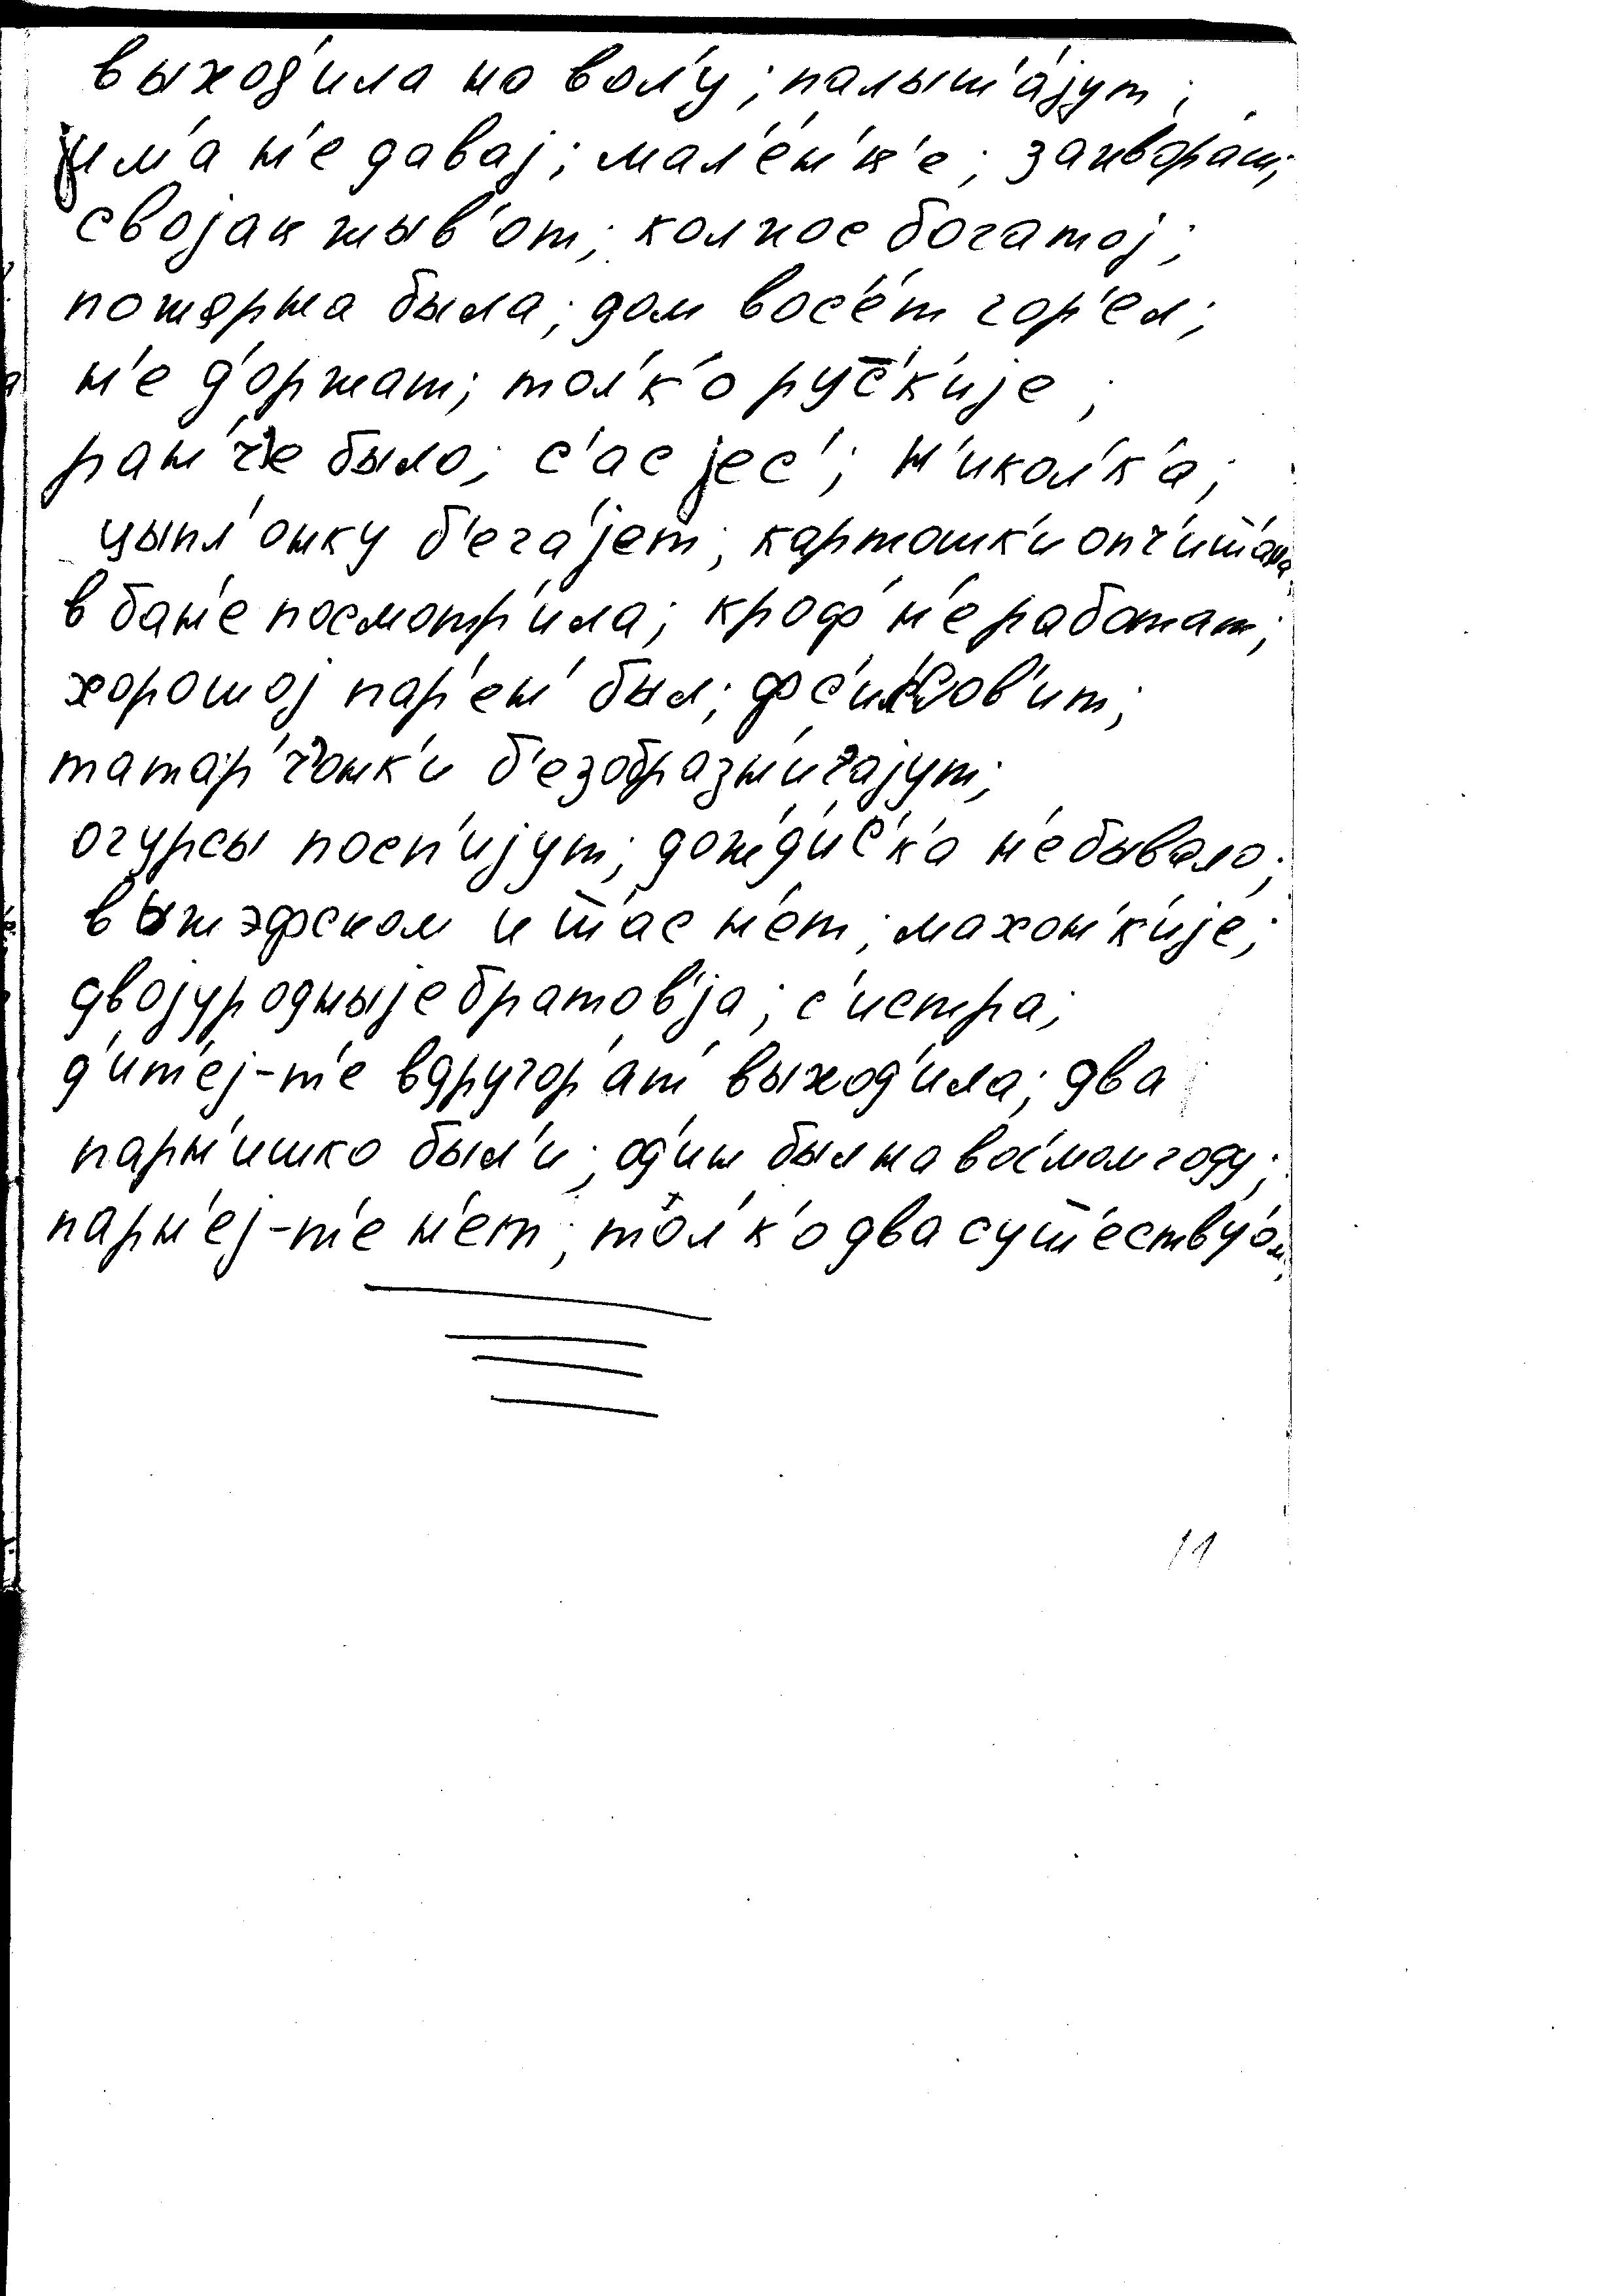 выход'ила на вол'у; палыш'ајут;
јим'а н'е давај; мал'ен'к'е; захворат;
својак жыв'от; колхос богатој;
пожарна была; дом вос'ет' гор'ел;
н'е д'оржат; тол'к'о рус'к'ије;
ран'че было; с'ас јес'; н'икол'к'а;
цыпл'онку б'егајет; картошк'и опч'ит'ана
в бан'е посмотр'ила; кроф' н'е работат;
хорошој пар'ен' был;
татар'чонк'и б'езобразн'ичајут;
огурсы посп'ијут; дожд'ис'к'а н'е бывало;
и т'ас н'ет; махон'к'ије;
двојуродныје братов'ја; с'истра;
д'ит'еј-т'е вдругор'ат' выход'ила; два
парн'ишко был'и; од'ин был на вос'мом году;
парн'еј-т'е н'ет; тол'к'о два
11